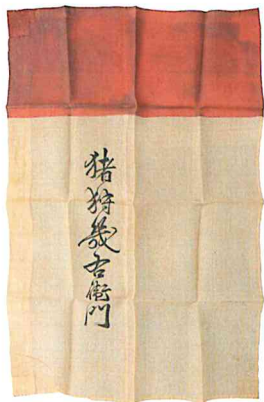 猪狩幾右衛門